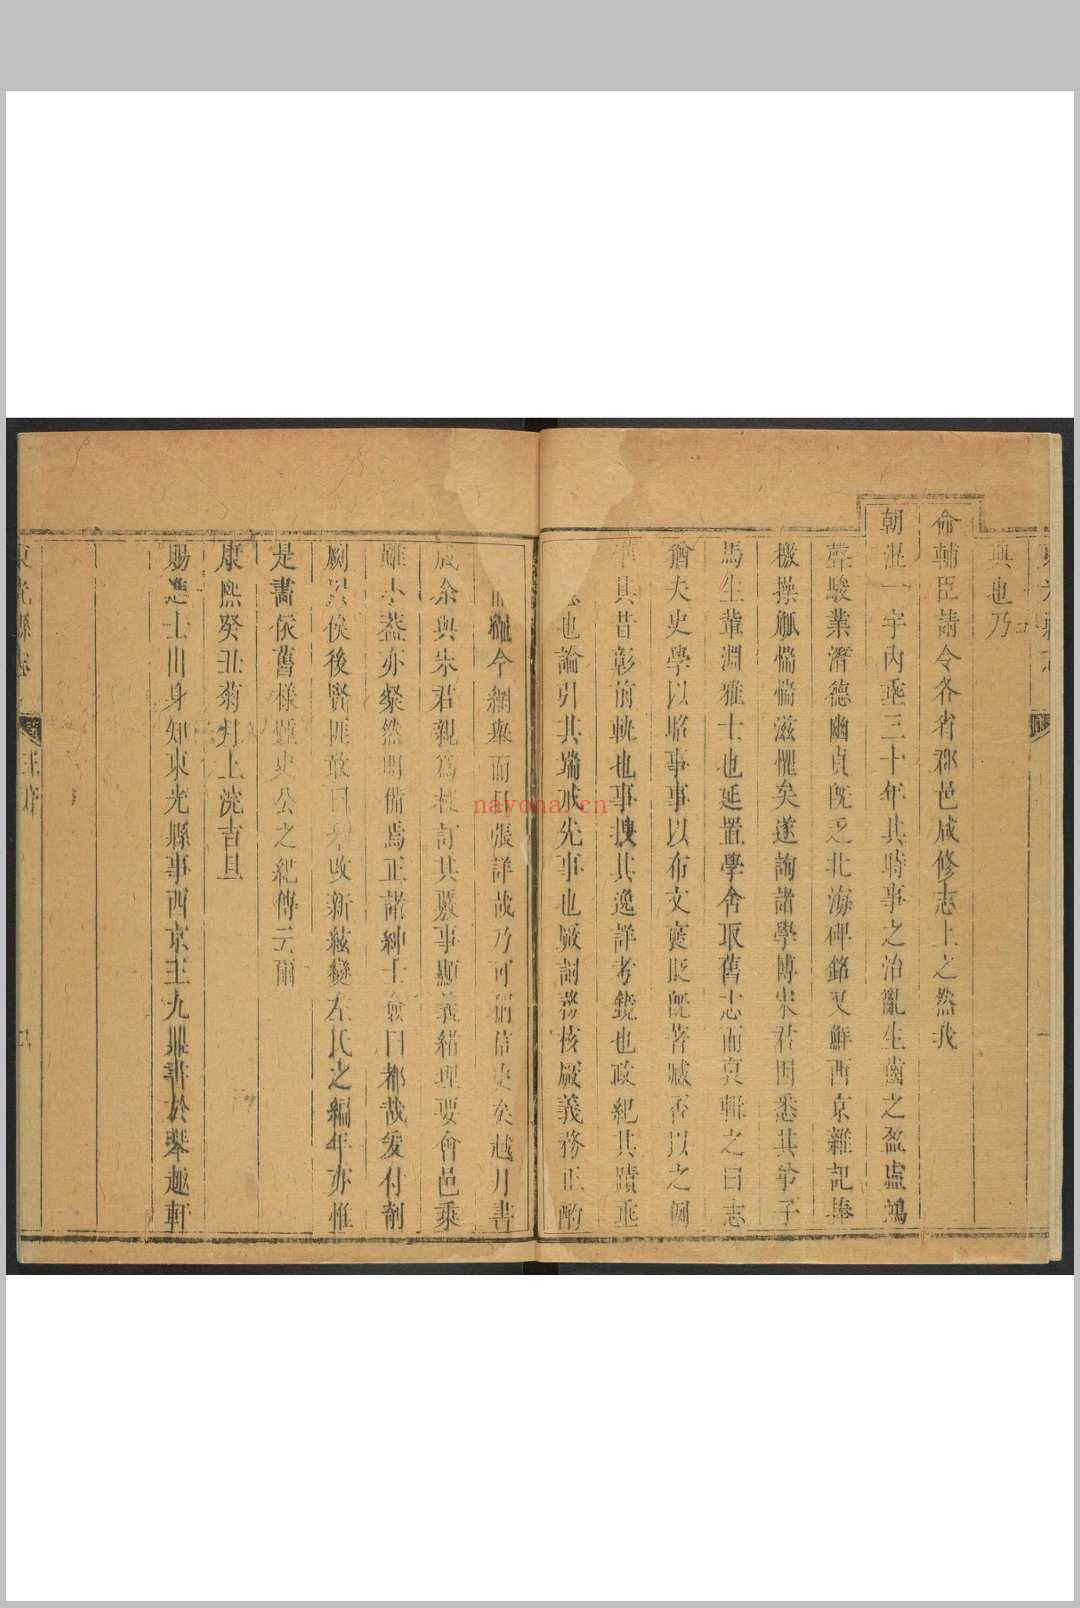 典也乃
命輔臣請令各省郡邑咸修志上之然我
朝混一宇內垂三十年其時事之治亂生齒之盈虛鴻
聲駿業潛德幽貞既乏北海碑銘又鮮西京雜記捧
檄操觚惴惴滋懼矣遂詢諸學博宋君因悉其爭子
馬生輩淵雅士也延置學舍取舊志而裒輯之曰志
猶夫史學以昭事事以布文褒貶既著臧否以之例
其昔彰前軌也事搜其逸詳考鏡也政紀其蹟垂
也論引其端戒先事也厥詞務核厥義務正酌
今網舉而目張詳哉乃可稱信史矣越月書
成余與朱君親為校訂其嚴事顯義緒理要會邑乘
雖小葢亦粲然明備焉正諸紳士僉曰都哉爰付剞
劂以俟後賢匪敢曰
改新絃變左氏之編年亦惟
是畫依舊樣
史公之紀傳云爾
康熙癸丑菊月上浣吉旦
賜進士出身知東光縣事西京王九鼎書於琴趣軒
東光縣志
王序
nayona.cn